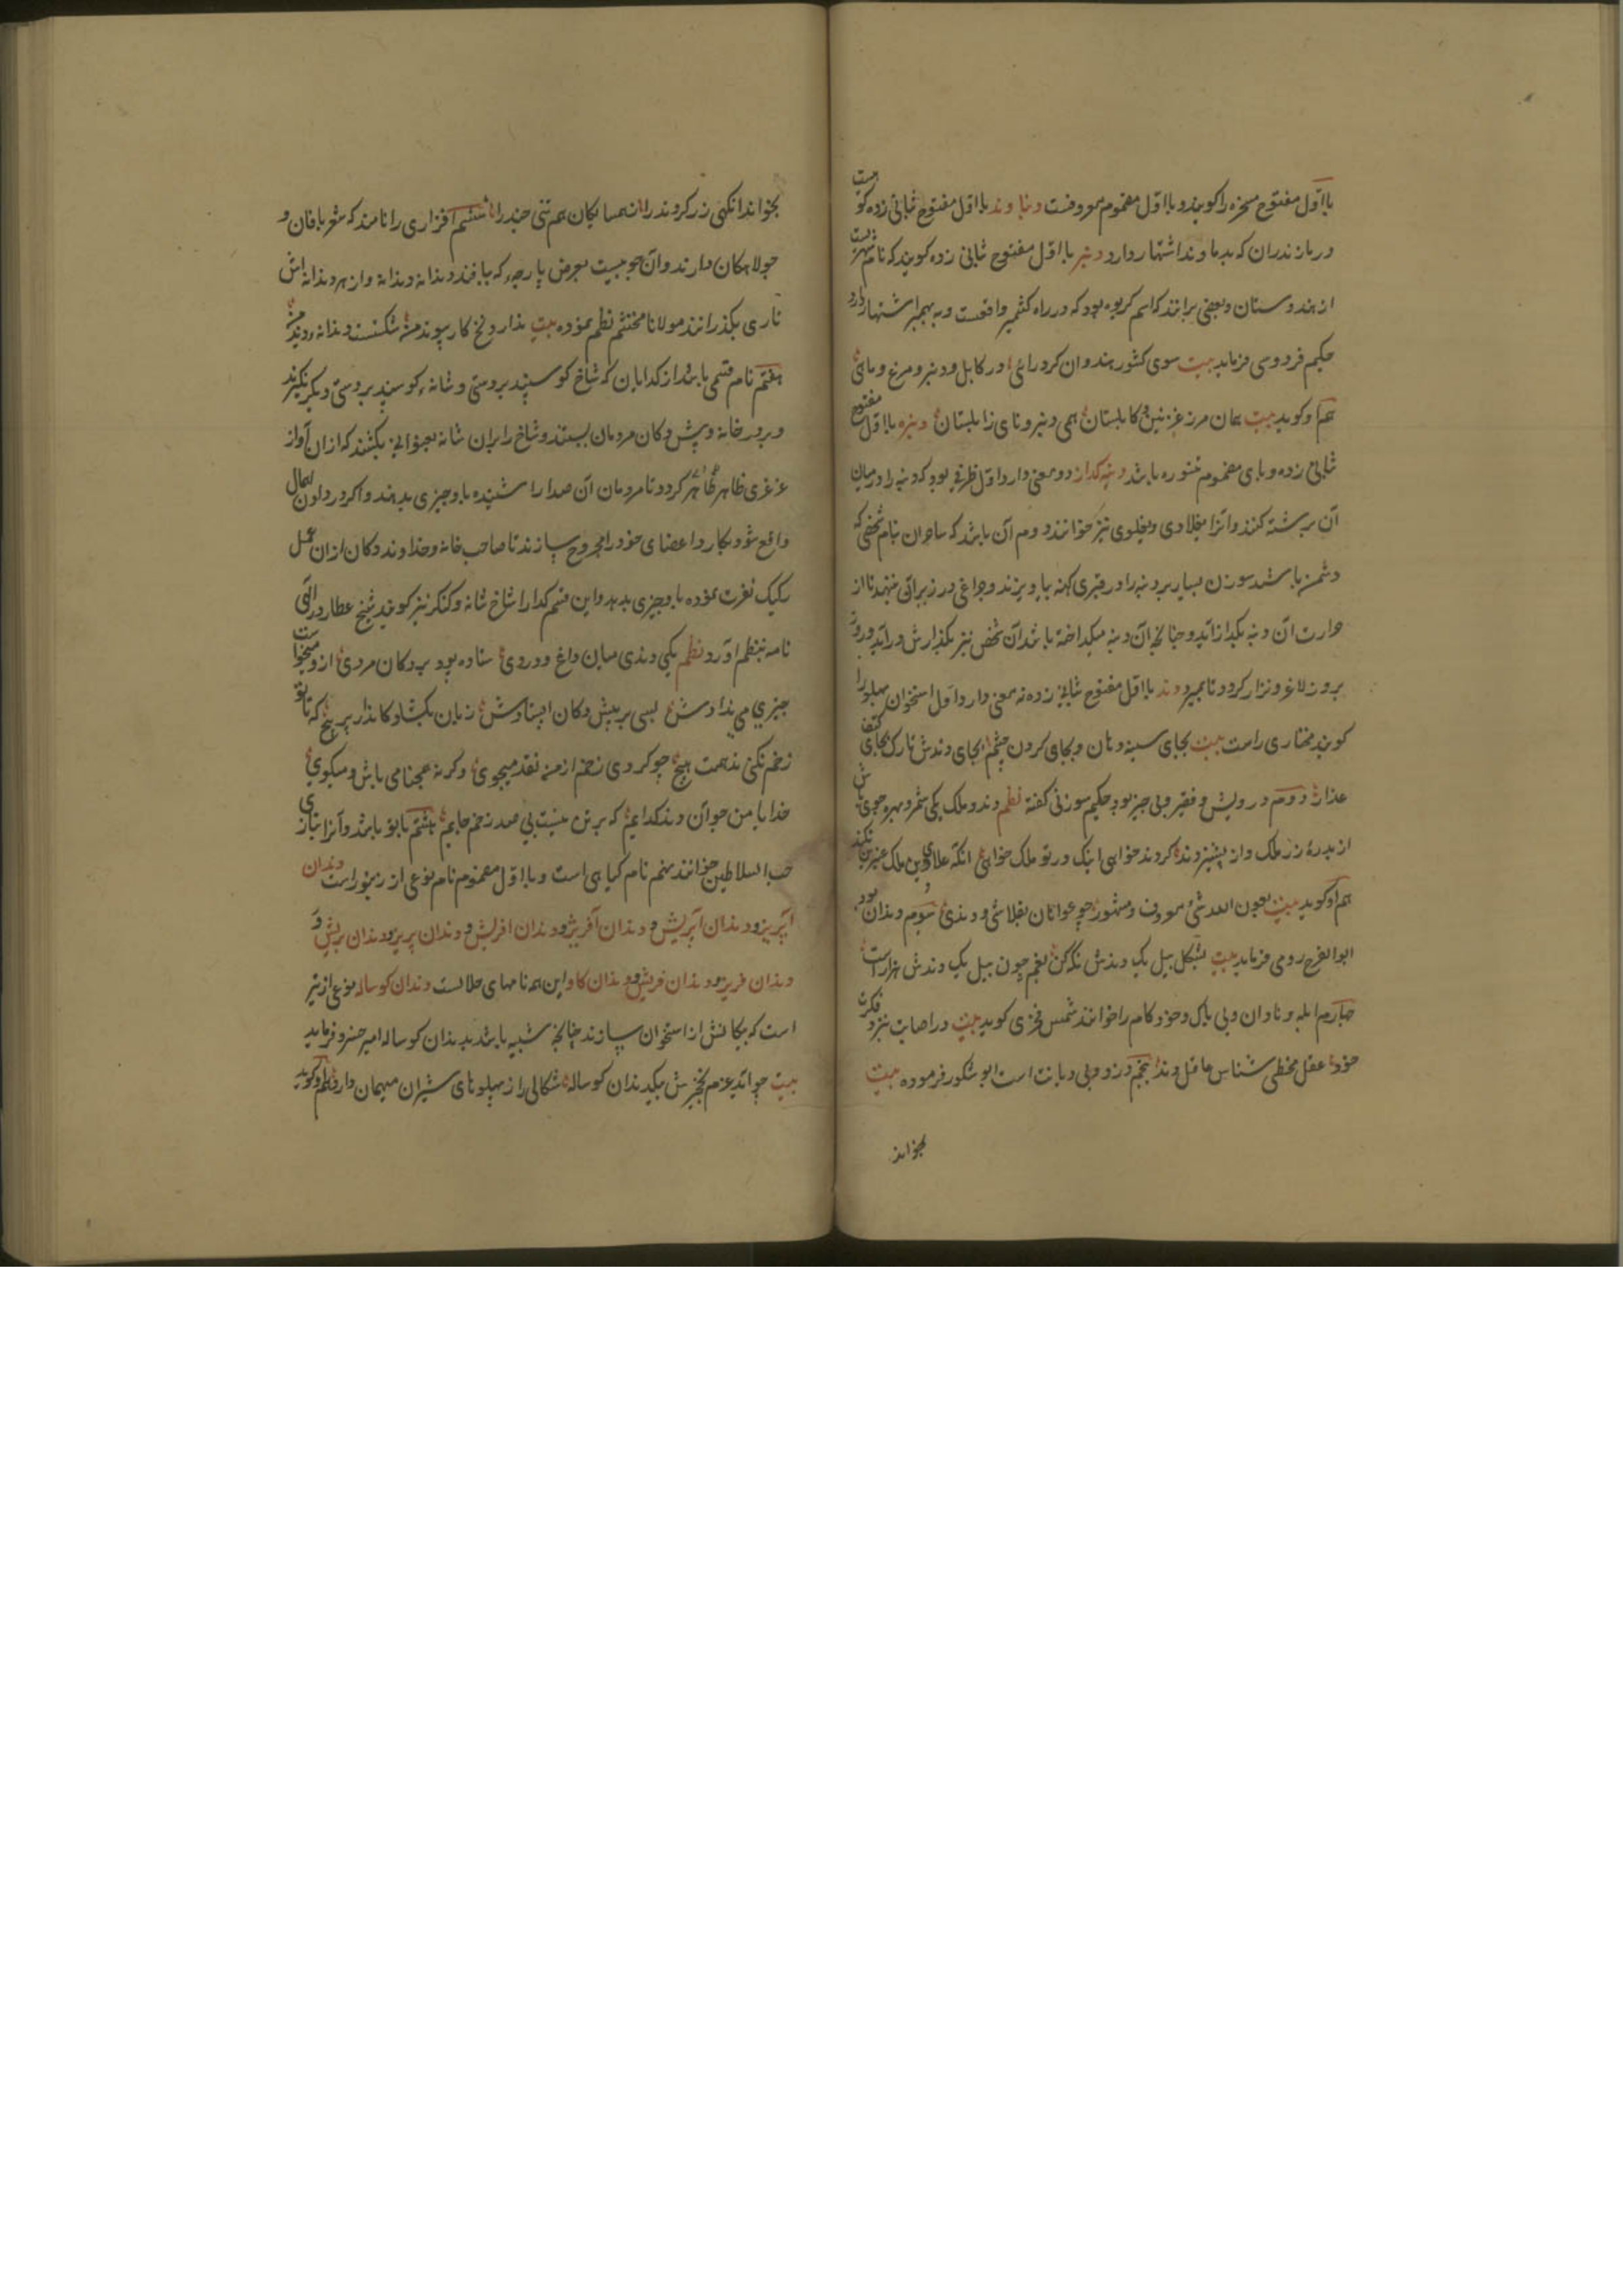 بااول مفتوح مسخره را کویند و بااول مضموم معروفست دنباوند بااول مفتوح ثبانی زده کو هیست
در مازندران که بدماوند اشتهار دارد دنبر بااول مفتوح ثبانی زده کویند که نام شهریست
از هندوستان و بعضی برانند که اسم کریوه بود که در راه کشمیر واقعست و به بهمبر اشتهار دارد
حکیم فردوسی فرماید بیت سوی کشور هندوان کرد رای در کابل و دنبر و مرغ و مای
هم او کوید بیت همان مرز غزنین و کابلستان همی دنبر و نای زابلستان دنبره بااول مفتوح
ثبانی زده و بای مضموم تنبوره باشد دنبه کداز دو معنی دارد اول ظرفی بود که دنبه را در میان
آن برشته کنند و آنرا بغلادی و بغلوی نیز خوانند دوم آن باشد که ساحران بنام شخصی که
دشمن باشد سوزن بسیار بر دنبه را در قبری کهنه بیاویزند و چراغی در زیر آن بنهند تا از
حرارت آن دنبه بکداز آید و چنانچه آن دنبه میکداخته باشد آن شخص نیز بکدازش در آید و روز
بروز لاغر و نزار کردد تا بمیرد دند بااول مفتوح ثبانی زده نه معنی دارد اول استخوان پهلو را
کویند مختاری راست بیت بجای سینه دهان و بجای کردن چشم بجای دندش تارک بجای کتف
عذار دوم درویش و فقیر و بی چیز بود حکیم سوزنی کفته نظم دند و ملک یکی شمر و بهره جوی باش
از بدره زر ملک و از پشیز دند کر دند خواهی اینک ور تو ملک خواهی انکه علای دین ملک
هم او کوید بیت بعون الله شی معروف و مشهور چو عوانان بقلاشی و دندی سوم دندان بود
ابوالفرج رومی فرماید بیت بشکل بیل یک دندش نکه کن بفهم چون بیل یک دندش هزار است
چهارم ابله و نادان و بی باک و خود کام را خوانند شمس فخری کوید بیت در اصابت بنزد فکرت
خود عقل مخطی شناس عاقل دند پنجم دزد و بی دیانت است ابوشکور فرموده بیت
بخواند
بخواند انکهی زرکر دند را ز همسایکان هم تنی چند را ششم افزاری را نامند که شعربافان و
جولاهکان دارند و آن چوبیست بعرض پارچه که بافند دندانه دندانه و از هر دندانه اش
تاری بکذرانند مولانا محتشم نظم نموده بیت شکست دندانه
هفتم نام قسمی باشد از کدایان که شاخ کوسپند بر دستی و شانه کوسپند بر دستی دیکر بکیرند
و بر در خانه و پیش دکان مردمان بیستند و شاخ را بران شانه بعنوانی بکشند که ازان آواز
غرغری ظاهر کردد تا مردمان آن صدا را شنیده باو چیزی بدهند و اکر در دادن اهمال
واقع شود بکارد اعضای خود را مجروح سازند تا صاحب خانه و خداوند دکان ازان عمل
رکیک نفرت نموده باو چیزی بدهد و این قسم کدا را شاخ شانه و کنکر نیز کویند شیخ عطار در الهی
نامه بنظم اورد نظم یکی دندی میان داغ و دردی ستاده بود بر دکان مردی ازو میخواست
چیزی می ندادش بسی بر پیش دکان ایستادش زبان بکشاد کاندار پر پیچ که تا تو
زخم نکنی ندهمت هیچ چو کردی زخم از من نقد میجوی وکرنه همچنین می باش و میکوی
خدایا من چو آن دند کدایم که بر تن نیست بی صد زخم جایم هشتم بابو باشد و آنرا بتازی
حب السلاطین خوانند نهم نام کیاهی است و بااول مضموم نام نوعی از زنبور است دندان
آپریز و دندان آپریش و دندان آفریز و دندان افریش و دندان پریز و دندان پریش و
دندان فریز و دندان فریش و دندان کاو این همه نامهای خلالست دندان کوساله نوعی از تیر
است که پیکانش از استخوان سازند چنانچه شبیه باشد بدندان کوساله امیر خسرو فرماید
بیت چو آید عزم نخچیرش بیک دندان کوساله شکالی را ز پهلوهای شیران میهمان دارد هم او کوید